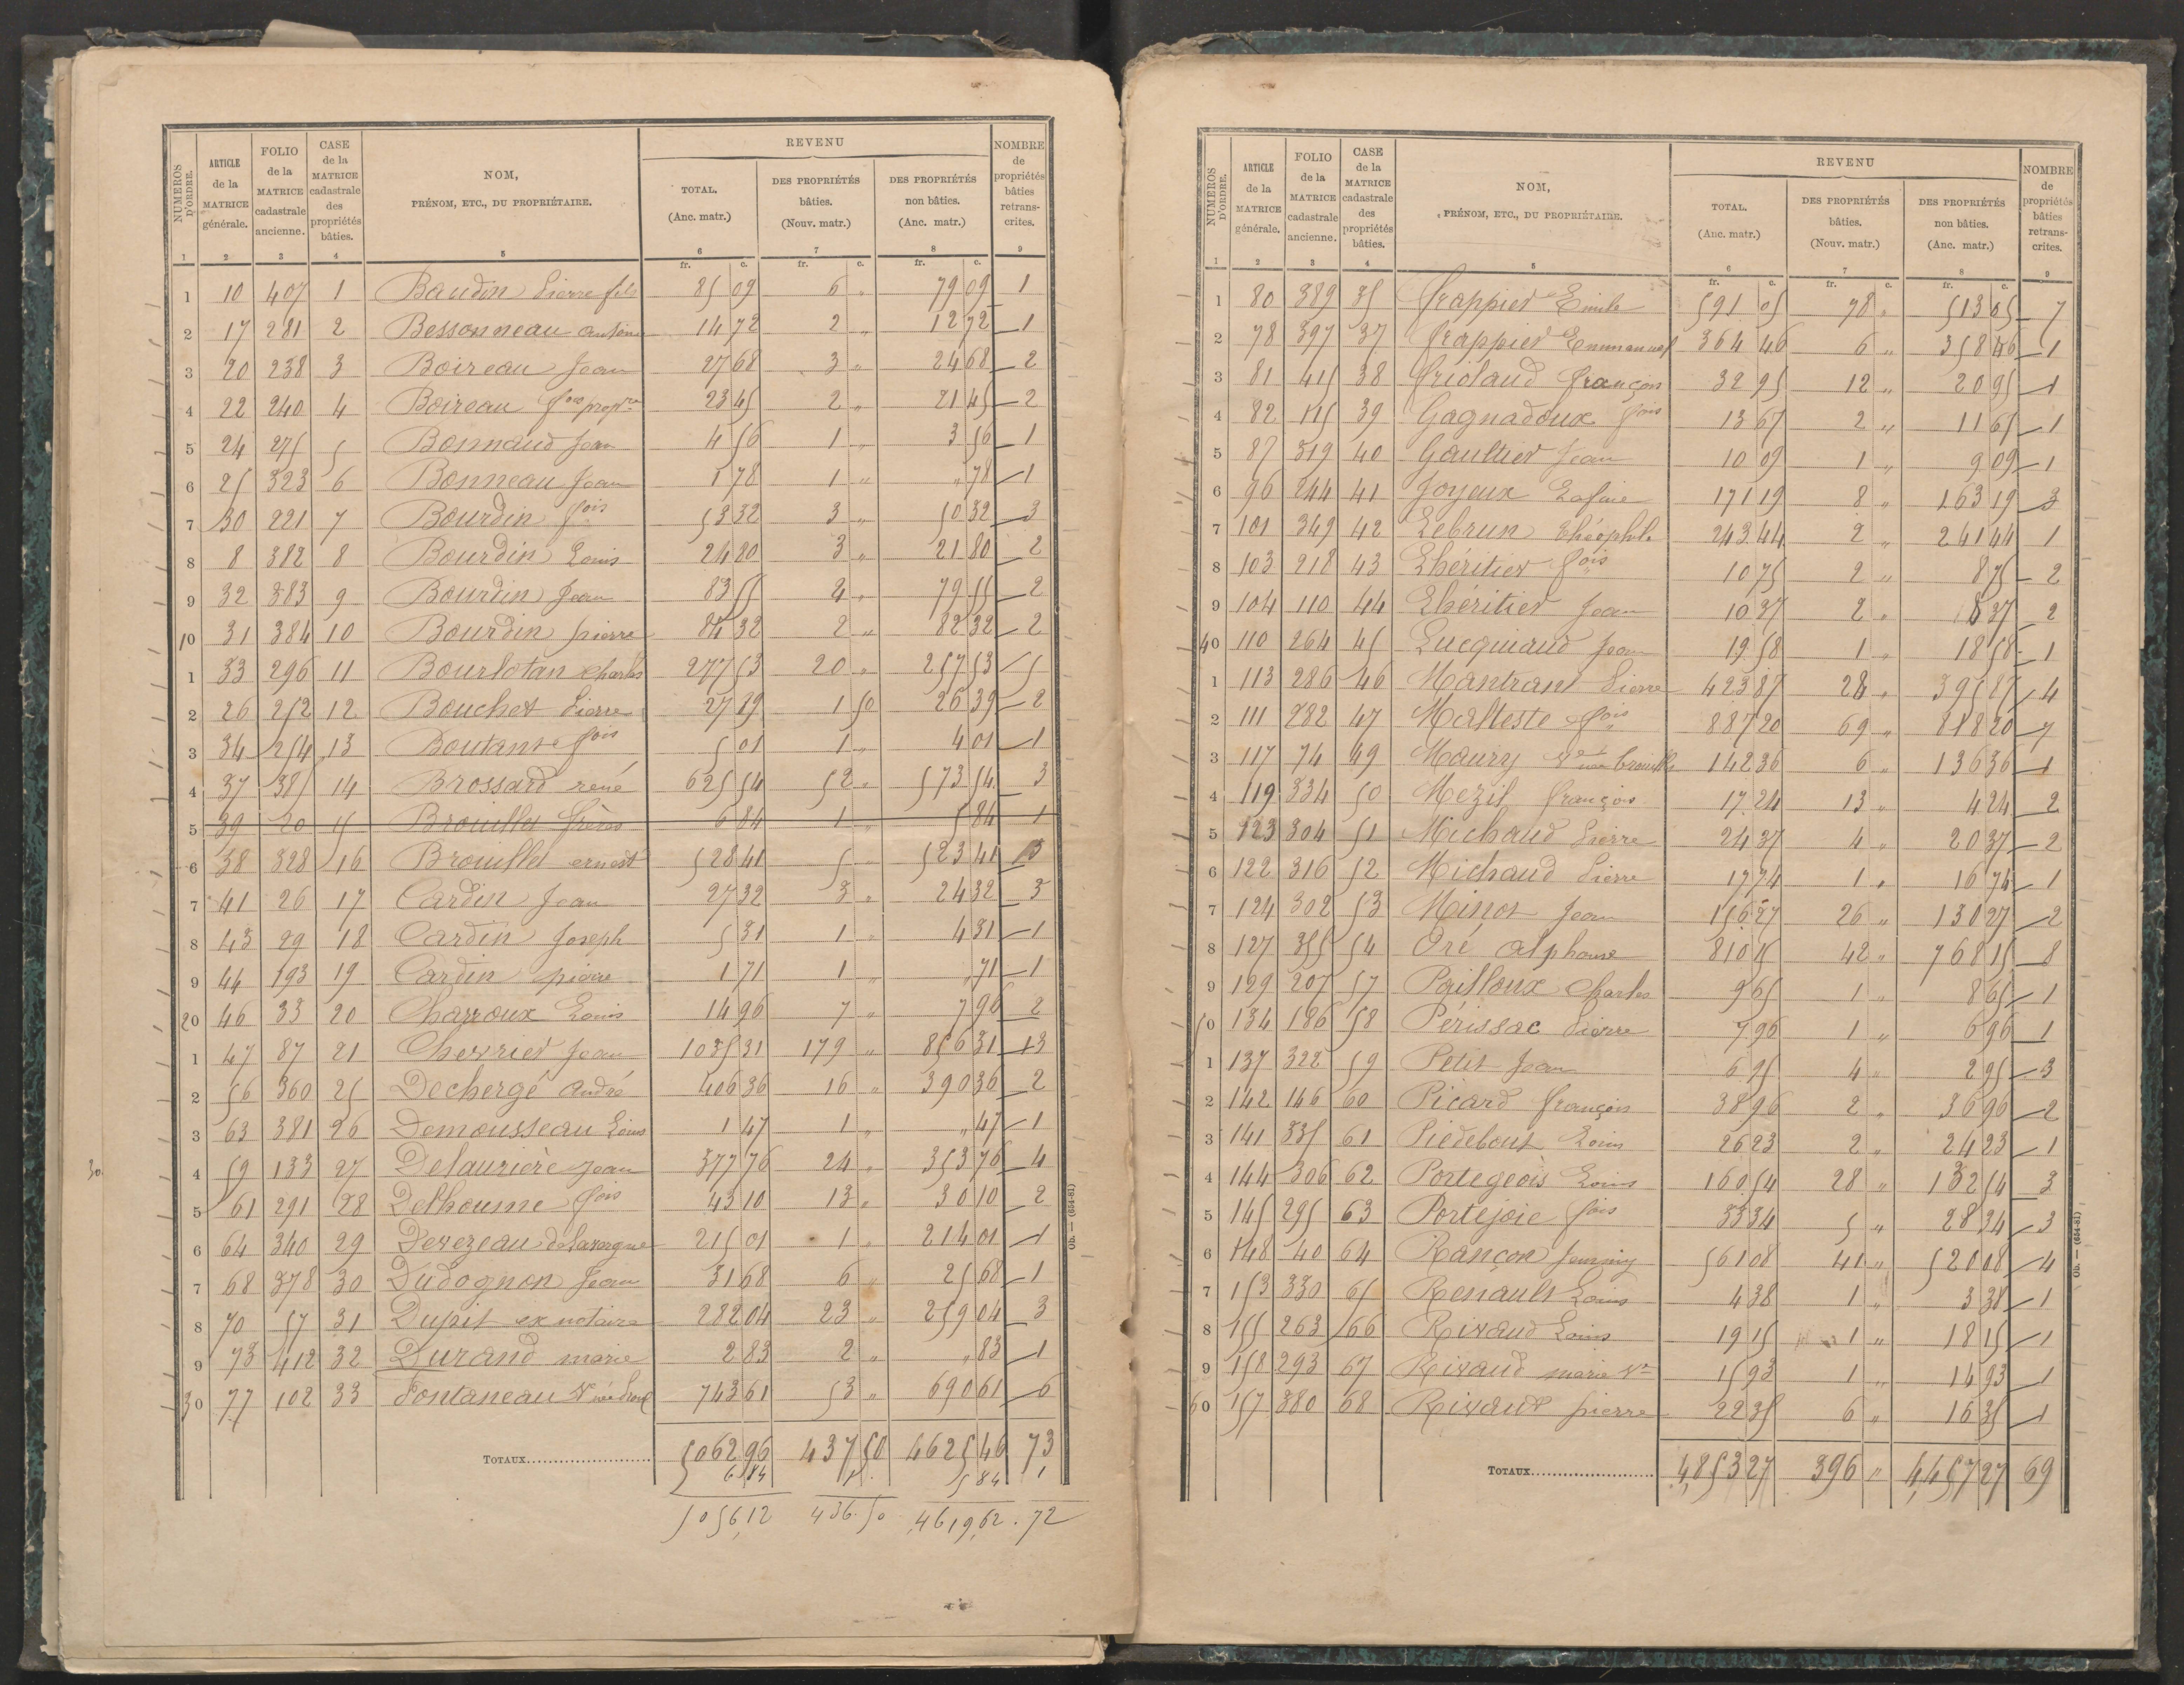 NUMÉROS D'ORDRE. | ARTICLE de la MATRICE générale. | FOLIO de la MATRICE cadastrale ancienne. | CASE de la MATRICE cadastrale des propriétés bâties. | NOM, PRÉNOM, ETC., DU PROPRIÉTAIRE. | REVENU | NOMBRE de propriétés bâties retranscrites.
TOTAL. (Anc. matr.) | DES PROPRIÉTÉS bâties. (Nouv. matr.) | DES PROPRIÉTÉS non bâties. (Anc. matr.)
1 2 3 4 5 6 7 8 9
fr. c. fr. c. fr. c.
1 10 407 1 Baudin Pierre fils 85 09 6 " 79 09 1
2 17 281 2 Bessonneau antoine 14 72 2 " 12 72 1
3 20 238 3 Boireau Jean 27 68 3 " 24 68 2
4 22 240 4 Boireau fois propre 23 45 2 " 21 45 2
5 24 275 5 Bonnaud Jean 4 56 1 " 3 56 1
6 25 323 6 Bonneau Jean 1 78 1 " " 78 1
7 30 221 7 Bourdin fois 53 32 3 " 50 32 3
8 8 382 8 Bourdin Louis 24 80 3 " 21 80 2
9 32 383 9 Bourdin Jean 83 55 4 " 79 55 2
10 31 384 10 Bourdin pierre 84 32 2 " 82 32 2
1 33 296 11 Bourlotan Charles 277 53 20 " 257 53 5
2 26 252 12 Bouchet Pierre 27 89 1 50 26 39 2
3 34 254 13 Boutant fois 5 01 1 " 4 01 1
4 37 385 14 Brossard rené 625 54 52 " 573 54 3
5 39 20 15 Brouillet frères 6 84 1 " 5 84 1
6 38 328 16 Brouillet ernest 528 41 5 " 523 41 3
7 41 26 17 Cardin Jean 27 32 3 " 24 32 3
8 43 29 18 Cardin Joseph 5 31 1 " 4 31 1
9 44 193 19 Cardin pierre 1 71 1 " " 71 1
20 46 33 20 Charroux Louis 14 96 7 " 7 96 2
1 47 87 21 Chevrier Jean 1035 31 179 " 856 31 13
2 56 360 25 Dechergé andré 406 36 16 " 390 36 2
3 63 381 26 Demousseau Louis 1 47 1 " " 47 1
30
4 59 133 27 Delaurière Jean 377 76 24 " 353 76 4
5 61 291 28 Delhoume fois 43 10 13 " 30 10 2
6 64 340 29 Devezeau de Lavergne 215 01 1 " 214 01 1
7 68 378 30 Dudognon Jean 31 68 6 " 25 68 1
8 70 57 31 Dupit ex notaire 282 04 23 " 259 04 3
9 73 412 32 Durand marie 2 83 2 " " 83 1
30 77 102 33 Fontaneau Ve née 743 61 53 " 690 61 6
TOTAUX 5062 96 437 50 4625 46 73
6 84 1 5 84 1
5056,12 436.50 4619,62 . 72
Ob. — (654-81)
NUMÉROS D'ORDRE. | ARTICLE de la MATRICE générale. | FOLIO de la MATRICE cadastrale ancienne. | CASE de la MATRICE cadastrale des propriétés bâties. | NOM, PRÉNOM, ETC., DU PROPRIÉTAIRE. | REVENU | NOMBRE de propriétés bâties retranscrites.
TOTAL. (Anc. matr.) | DES PROPRIÉTÉS bâties. (Nouv. matr.) | DES PROPRIÉTÉS non bâties. (Anc. matr.)
1 2 3 4 5 6 7 8 9
fr. c. fr. c. fr. c.
1 80 389 35 frappier Emile 591 05 78 " 513 05 7
2 78 397 37 frappier Emmanuel 364 46 6 " 358 46 1
3 81 415 38 friolaud françois 32 95 12 " 20 95 1
4 82 115 39 Gagnadoux fois 13 67 2 " 11 67 1
5 87 319 40 Gaultier Jean 10 09 1 " 9 09 1
6 96 244 41 Joyeux 171 19 8 " 163 19 3
7 101 349 42 Lebrun théophile 243 44 2 " 241 44 1
8 103 218 43 Lhéritier fois 10 75 2 " 8 75 2
9 104 110 44 Lhéritier Jean 10 37 2 " 8 37 2
40 110 264 45 Lucquiaud Jean 19 58 1 " 18 58 1
1 113 286 46 Mantrant Pierre 423 87 28 " 395 87 4
2 111 282 47 Malteste fois 887 20 69 " 818 20 7
3 117 74 49 Maury Ve née brouillet 142 36 6 " 136 36 1
4 119 334 50 Mezil françois 17 24 13 " 4 24 2
5 123 304 51 Michaud Pierre 24 37 4 " 20 37 2
6 122 316 52 Michaud Pierre 17 74 1 " 16 74 1
7 124 302 53 Minot Jean 156 27 26 " 130 27 2
8 127 355 54 Oré alphonse 810 15 42 " 768 15 8
9 129 207 57 Pailloux Charles 9 65 1 " 8 65 1
50 134 186 58 Périssac Pierre 7 96 1 " 6 96 1
1 137 322 59 Petit Jean 6 95 4 " 2 95 3
2 142 146 60 Picard françois 38 96 2 " 36 96 2
3 141 335 61 Piedebout Louis 26 23 2 " 24 23 1
4 144 306 62 Portegeois Louis 160 54 28 " 132 54 3
5 145 295 63 Portejoie fois 33 34 5 " 28 34 3
6 148 40 64 Rançon Jemmy 561 08 41 " 520 08 4
7 153 330 65 Renault Louis 4 38 1 " 3 38 1
8 155 263 66 Rivaud Louis 19 15 1 " 18 15 1
9 158 293 67 Rivaud marie Ve 15 93 1 " 14 93 1
60 157 380 68 Rivaud pierre 22 35 6 " 16 35 1
TOTAUX 4,853 27 396 " 4,457 27 69
Ob. — (654-81)